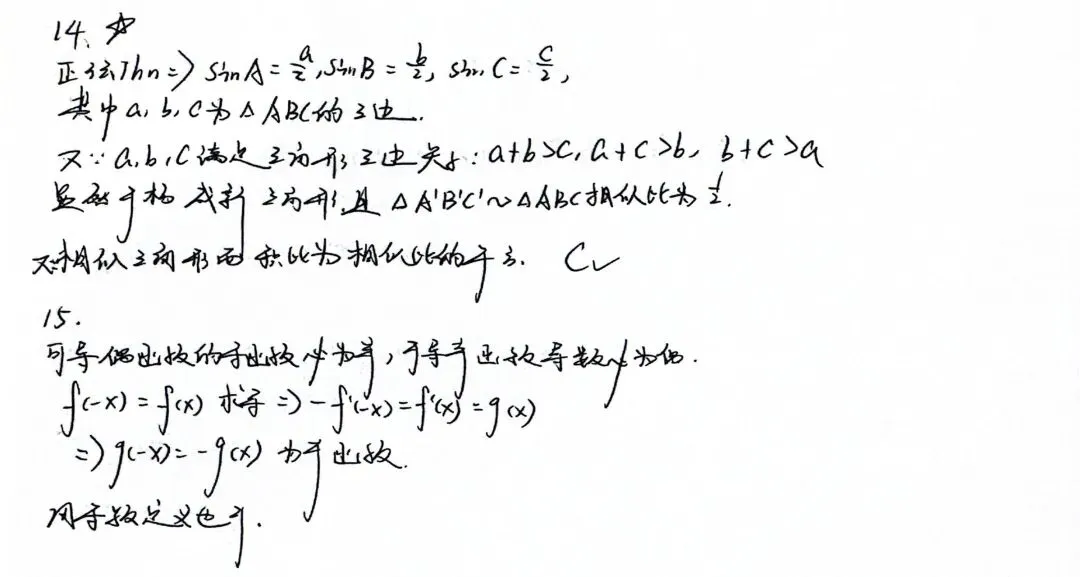 14、☆
正弦Thm => sinA = a/2, sinB = b/2, sinC = c/2,
其中 a, b, c 为 △ABC的三边.
又∵a, b, c满足三角形三边关系: a+b>c, a+c>b, b+c>a
显然可构成新三角形,且 △A'B'C'∽△ABC相似比为 1/2.
又∵相似三角形面积比为相似比的平方. C✓
15.
可导偶函数的导函数必为奇,可导奇函数导数必为偶.
f(-x) = f(x) 求导 => -f'(-x) = f'(x) = g(x)
=> g(-x) = -g(x) 为奇函数.
用导数定义也可.